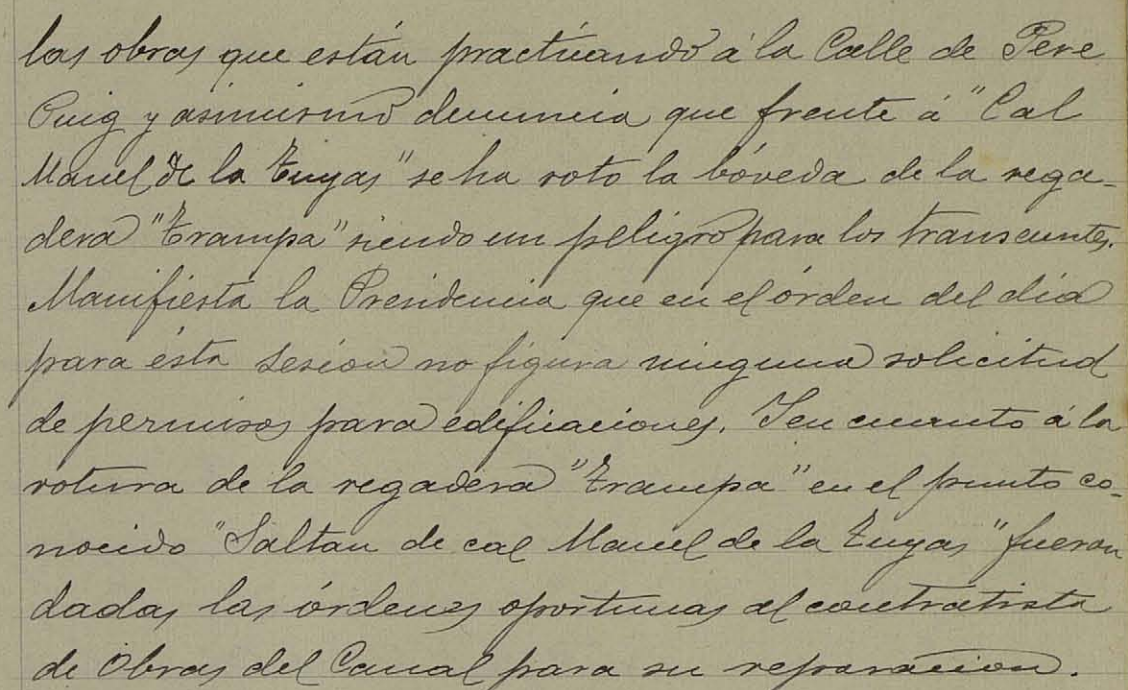 las obras que están practicando á la Calle de Pere
Puig y asimismo denuncia que frente á "Cal
Manel de la Tuyas" se ha roto la bóveda de la rega-
dera "Trampa" siendo un peligro para los transeuntes.
Manifiesta la Presidencia que en el órden del dia
para ésta sesion no figura ninguna solicitud
de permisos para edificaciones. Y en cuanto á la
rotura de la regadera "Trampa" en el punto co-
nocido "Saltan de cal Manel de la Tuyas" fueron
dadas las órdenes oportunas al contratista
de Obras del Canal para su reparacion.